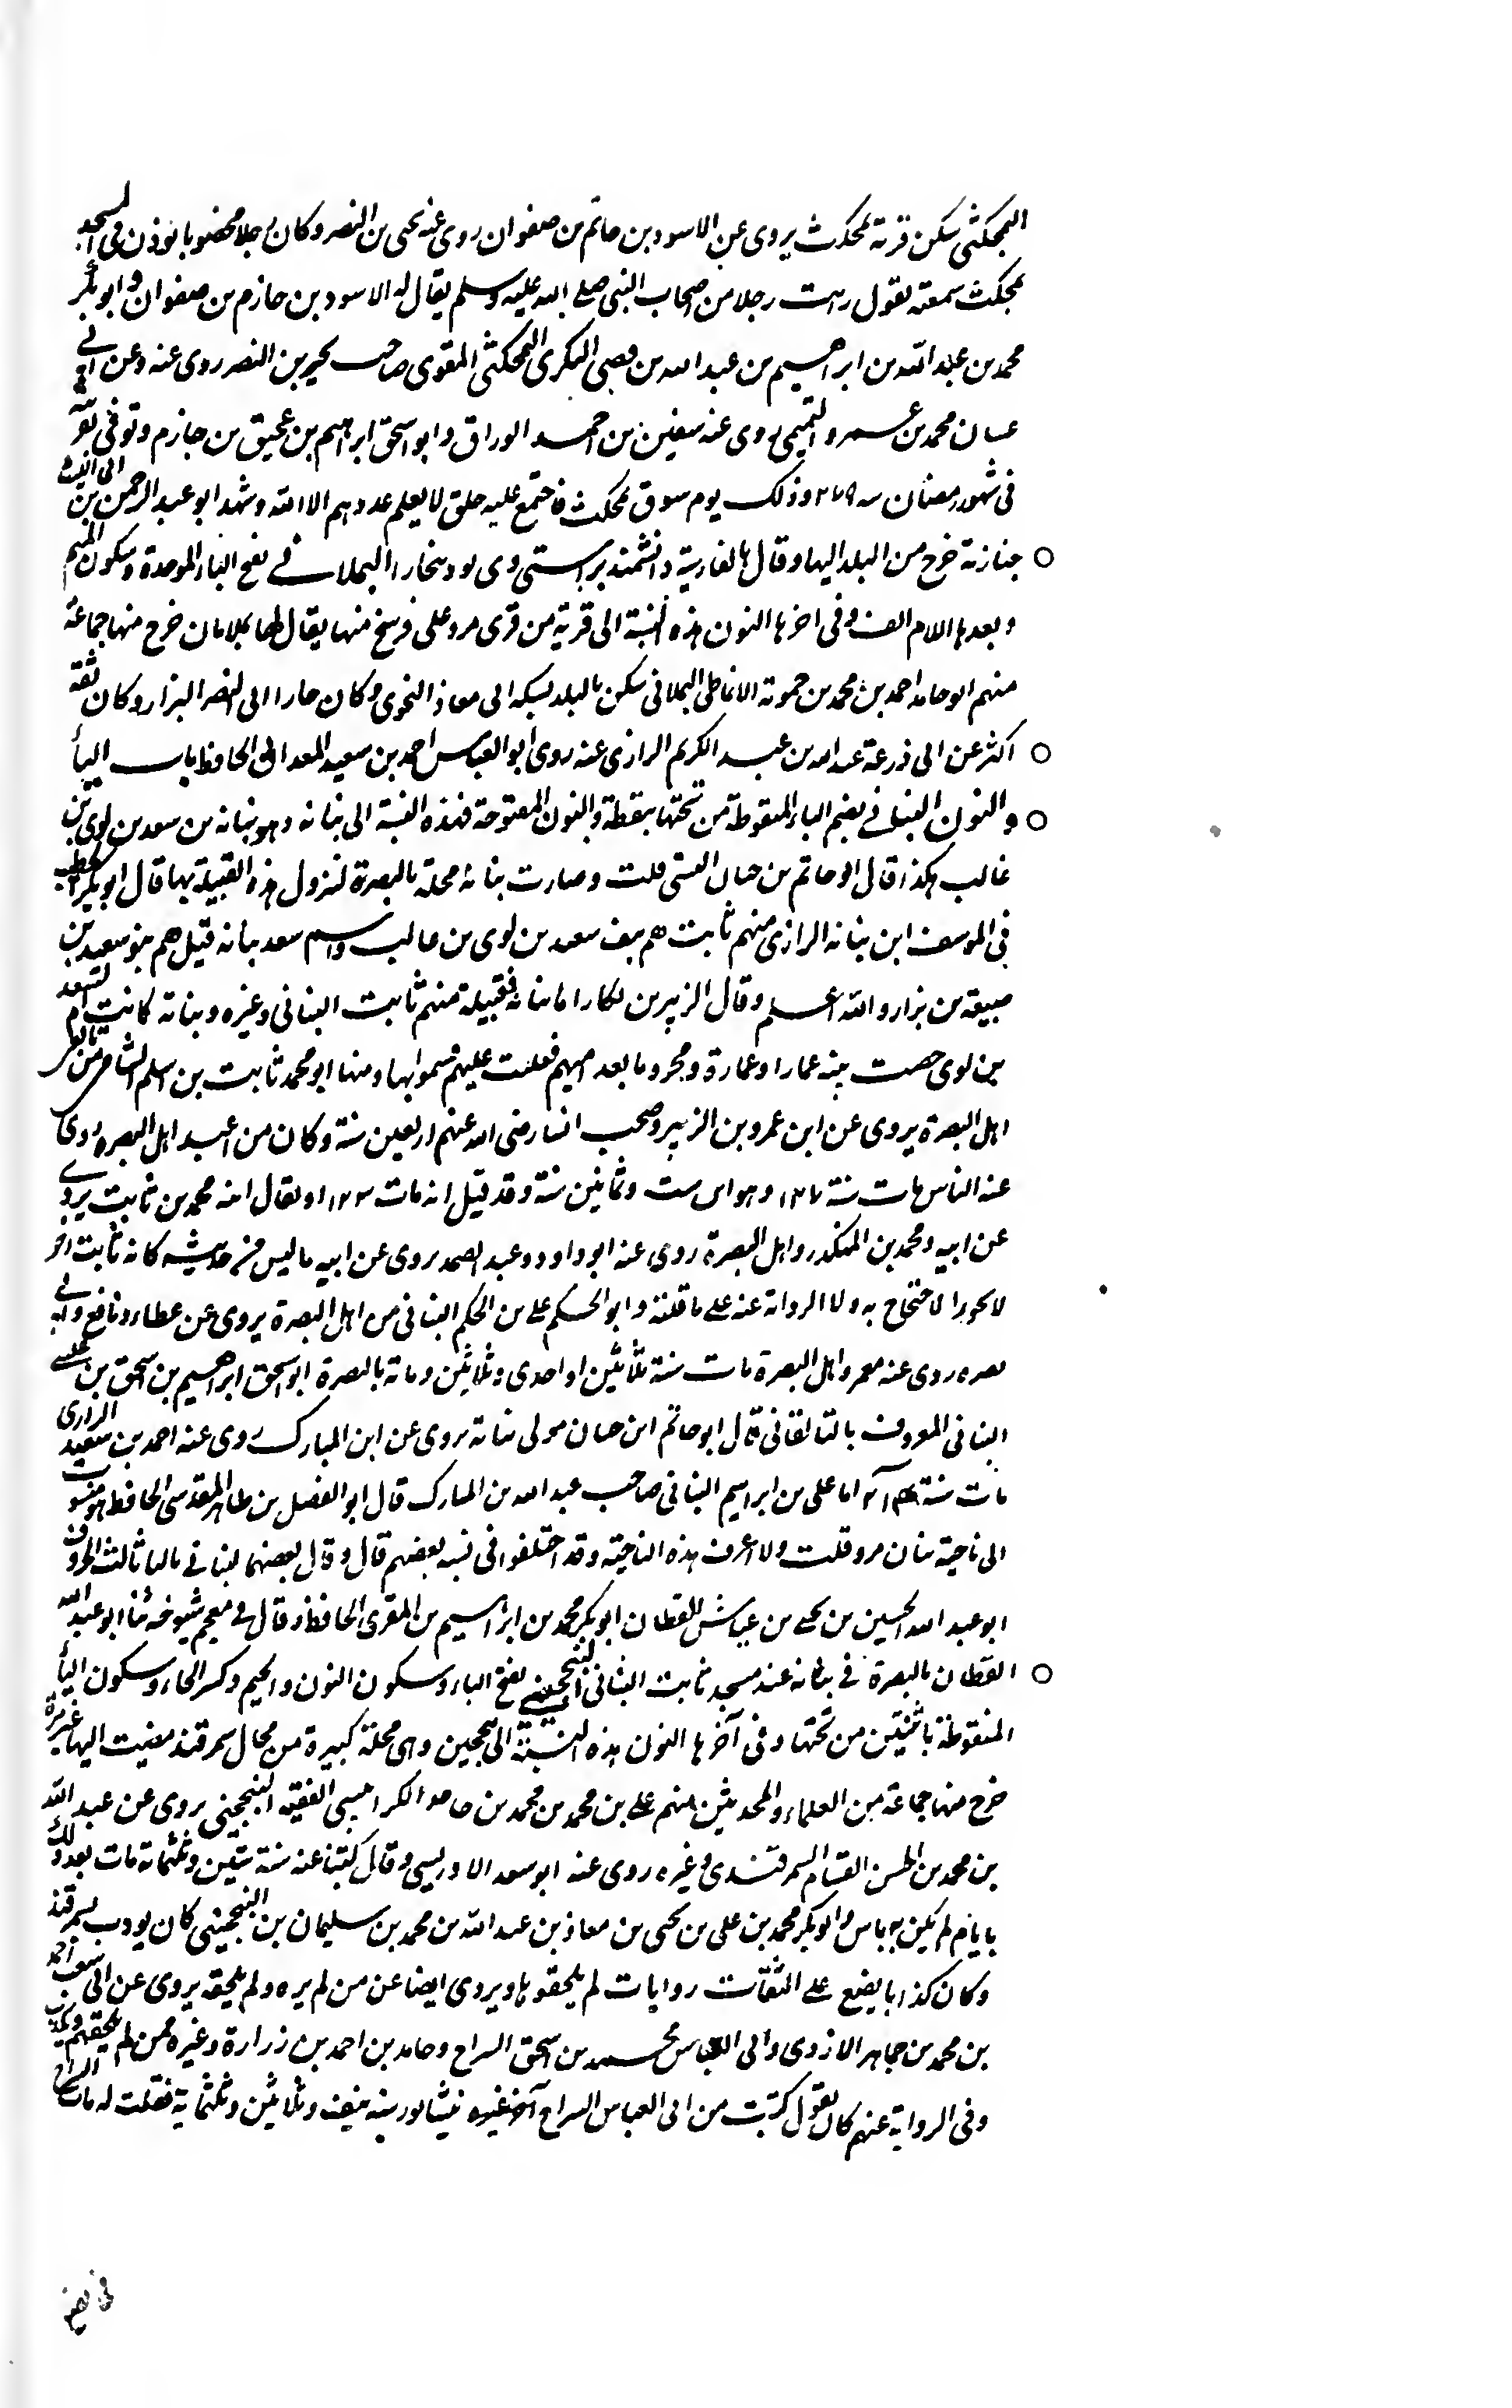 البمجكثى سكن قرية بمجكث يروى عن الاسود بن حاتم بن صفوان روى عنه يحيى بن النصر وكان رجلا مخضوبا يوذن فى المسجد
بمجكث سمعته يقول رايت رجلا من اصحاب النبى صلى الله عليه وسلم يقال له الاسود بن حازم بن صفوان وابو بكر
محمد بن عبد الله بن ابراهيم بن عبد الله بن قصى البكرى البمجكثى المقوى صاحب بحير بن النصر روى عنه وعن ابى
عسان محمد بن عمرو التميمى روى عنه سفين بن احمد الوراق وابو اسحق ابراهيم بن عجيق بن حازم وتوفى
فى شهور رمضان سه ٢٧٩ وذلك يوم سوق بمجكث فاجتمع عليه خلق لا يعلم عددهم الا الله وشهد ابو عبد الرحمن بن ابى الليث
جنازته خرج من البلد اليها وقال بالفارسية دانشمند براستى وى بود ببخارا البملانى بفتح الباء الموحدة وسكون الميم
وبعدها اللام الف وفى اخرها النون هذه النسبة الى قرية من قرى مرو على فرسخ منها يقال لها بملامان خرج منها جماعة
منهم ابو حامد احمد بن محمد بن حموية الانماطى البملانى سكن بالبلد بسكه ابى معاذ النحوى وكان جارا ابى النصر البزار وكان ثقة
اكثر عن ابى ذرعة عبد الله بن عبد الكريم الرازى عنه روى ابو العباس احمد بن سعيد المعدانى الحافظ باب البأ
والنون البنانى بضم الباء المنقوطة من تحتها بنقطة والنون المفتوحة فهذه النسبة الى بنانه وهو بنانه بن سعد بن لوى بن
غالب هكذا قال ابو حاتم بن حبان البستى قلت وصارت بنانة محلة بالبصرة لنزول هذه القبيلة بها قال ابو بكر الخطيب
فى الموسف ابن بنانه الرازى منهم ثابت هم بنو سعد بن لوى بن غالب واسم سعد بنانه قيل هم بنو سعيد بن
ضبيعه بن نزار والله اعلم وقال الزبير بن بكار اما بنانه فقبيلة منهم ثابت البنانى وغيره وبنانة كانت ام لسعد
بن لوى حضنت بنيه عمارا وعمارة ومجر وما بعد امهم فغلبت عليهم فسموا بها ومنها ابو محمد ثابت بن اسلم البنانى من تابعى
اهل البصرة يروى عن ابن عمرو بن الزبير وصحب انسا رضى الله عنهم اربعين سنة وكان من اعبد اهل البصره روى
عنه الناس مات سنة ١٢٧ وهو ابن ست وثمانين سنة وقد قيل انه مات ١٢٣ ويقال ابنه محمد بن ثابت يروى
عن ابيه ومحمد بن المنكدر واهل البصرة روى عنه ابو داود وعبد الصمد يروى عن ابيه ما ليس من حديثه كانه ثابت اخر
لا يجوز الاحتجاج به ولا الرواية عنه على ما قلته وابو الحكم على بن الحكم البنانى من اهل البصرة يروى عن عطاء ونافع وابى
نضره روى عنه معمر واهل البصرة مات سنة ثلاثين او احدى وثلاثين وماية بالبصرة ابو اسحق ابراهيم بن اسحق بن عيسى
البنانى المعروف بالتالقانى قال ابو حاتم ابن حبان مولى بنانة يروى عن ابن المبارك روى عنه احمد بن سعيد الرازى
مات سنة اما على بن ابراهيم البنانى صاحب عبد الله بن المبارك قال ابو الفضل بن طاهر المقدسى الحافظ هو منسوب
الى ناحية بنان مرو قلت ولا اعرف هذه الناحية وقد اختلفوا فى نسبه بعضهم قال وقال بعضهما البنانى بالباء ثالث الحروف
ابو عبد الله الحسين بن يحيى بن عياش القطان ابو بكر محمد بن ابراهيم بن المقرى الحافظ وقال فى معجم شيوخه ثنا ابو عبد الله
القطان بالبصرة فى بنانه عند مسجد ثابت البنانى البنجينى بفتح الباء وسكون النون والجيم وكسر الحاء وسكون اليأ
المنقوطة باثنتين من تحتها وفى آخرها النون هذه النسبة الى بنجين وهى محلة كبيرة من محال سمرقند مضيت اليها غير مرة
خرج منها جماعة من العلماء والمحدثين منهم على بن محمد بن محمد بن حامد الكرابيسى الفقيه البنجينى يروى عن عبد الله
بن محمد بن الحسن القسام السمرقندى وغيره روى عنه ابو سعد الادريسى وقال كتبنا عنه سنة ستين وثلثماية مات بعد ذلك
بايام لم يكن به باس وابو بكر محمد بن على بن يحيى بن معاذ بن عبد الله بن محمد بن سليمان بن البنجينى كان يودب بسمرقند
وكان كذابا يضع على الثقات روايات لم يلحقوها ويروى ايضا عن من لم يره ولم يلحقه يروى عن ابى سعد احمد
بن محمد بن جماهر الازدى وابى العباس محمد بن اسحق السراج وحامد بن احمد بن زرارة وغيره ممن لم يلحقهم ويكذب
وفى الرواية عنهم كان يقول كتبت من ابى العباس السراج آخر غيره نيشابور سنه نيف وثلاثين وثلثماية فقلت له مات السراج
فى